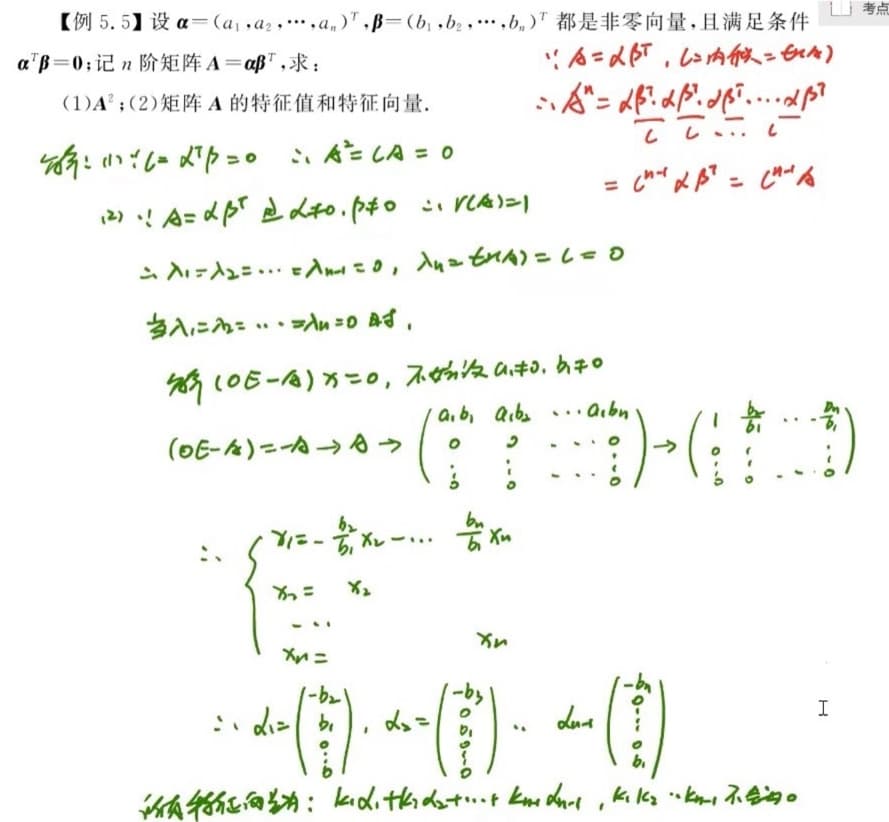 考点
【例 5.5】设 α=(a₁,a₂,⋯,aₙ)ᵀ,β=(b₁,b₂,⋯,bₙ)ᵀ 都是非零向量,且满足条件
αᵀβ=0;记 n 阶矩阵 A=αβᵀ,求:
(1)A²;(2)矩阵 A 的特征值和特征向量.
∵ A=αβᵀ, L=内积=tr(A)
∴ Aⁿ=αβᵀ·αβᵀ·αβᵀ⋯·αβᵀ
L L ⋯ L
= Lⁿ⁻¹αβᵀ = Lⁿ⁻¹A
解: (1) ∵ L=αᵀβ=0 ∴ A²=LA=0
(2) ∵ A=αβᵀ 且 α≠0, β≠0 ∴ r(A)=1
∴ λ₁=λ₂=⋯=λₙ₋₁=0, λₙ=tr(A)=L=0
当λ₁=λ₂=⋯=λₙ=0 时,
解(0E-A)x=0, 不妨设 a₁≠0, b₁≠0
(0E-A)=-A→A→ (a₁b₁ a₁b₂ ⋯ a₁bₙ; 0 0 ⋯ 0; ⋮ ⋮ ⋮; 0 0 ⋯ 0) → (1 b₂/b₁ ⋯ bₙ/b₁; 0 ⋮ ⋮; ⋮ ⋮ ⋮; 0 0 ⋯ 0)
∴ { x₁=-b₂/b₁ x₂-⋯ bₙ/b₁ xₙ
x₂= x₂
⋯
xₙ= xₙ
∴ α₁=(-b₂ b₁ 0 ⋮ 0), α₂=(-b₃ 0 b₁ 0 ⋮ 0) ⋯ αₙ₋₁(-bₙ 0 ⋮ 0 b₁)
所有特征向量为: k₁α₁+k₂α₂+⋯+kₙ₋₁αₙ₋₁, k₁k₂⋯kₙ₋₁不全为0